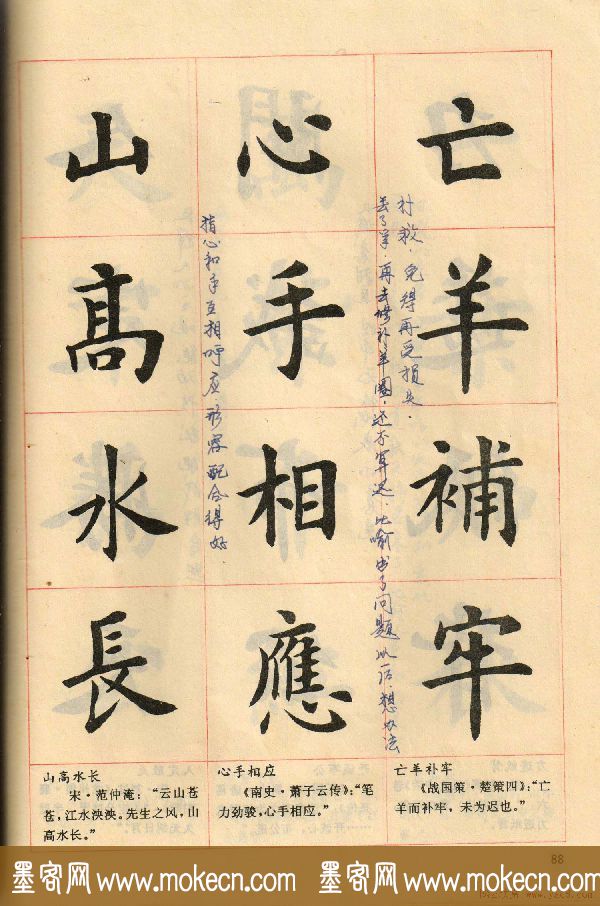 亡羊補牢
补救，免得再受损失．
丢了羊，再去修补羊圈，还不算迟．比喻出了问题以后，想办法
心手相應
指心和手互相呼应．形容配合得好
山高水長
山高水长
宋·范仲淹：“云山苍
苍，江水泱泱。先生之风，山
高水长。”
心手相应
《南史·萧子云传》：“笔
力劲骏，心手相应。”
亡羊补牢
《战国策·楚策四》：“亡
羊而补牢，未为迟也。”
88
墨客网 www.mokecn.com 墨客网 www.mokecn.com